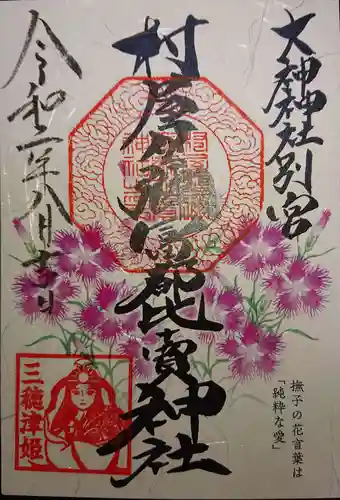 大神神社別宮
村屋坐弥冨都比賣神社
令和二年八月
三穂津姫
撫子の花言葉は
「純粋な愛」